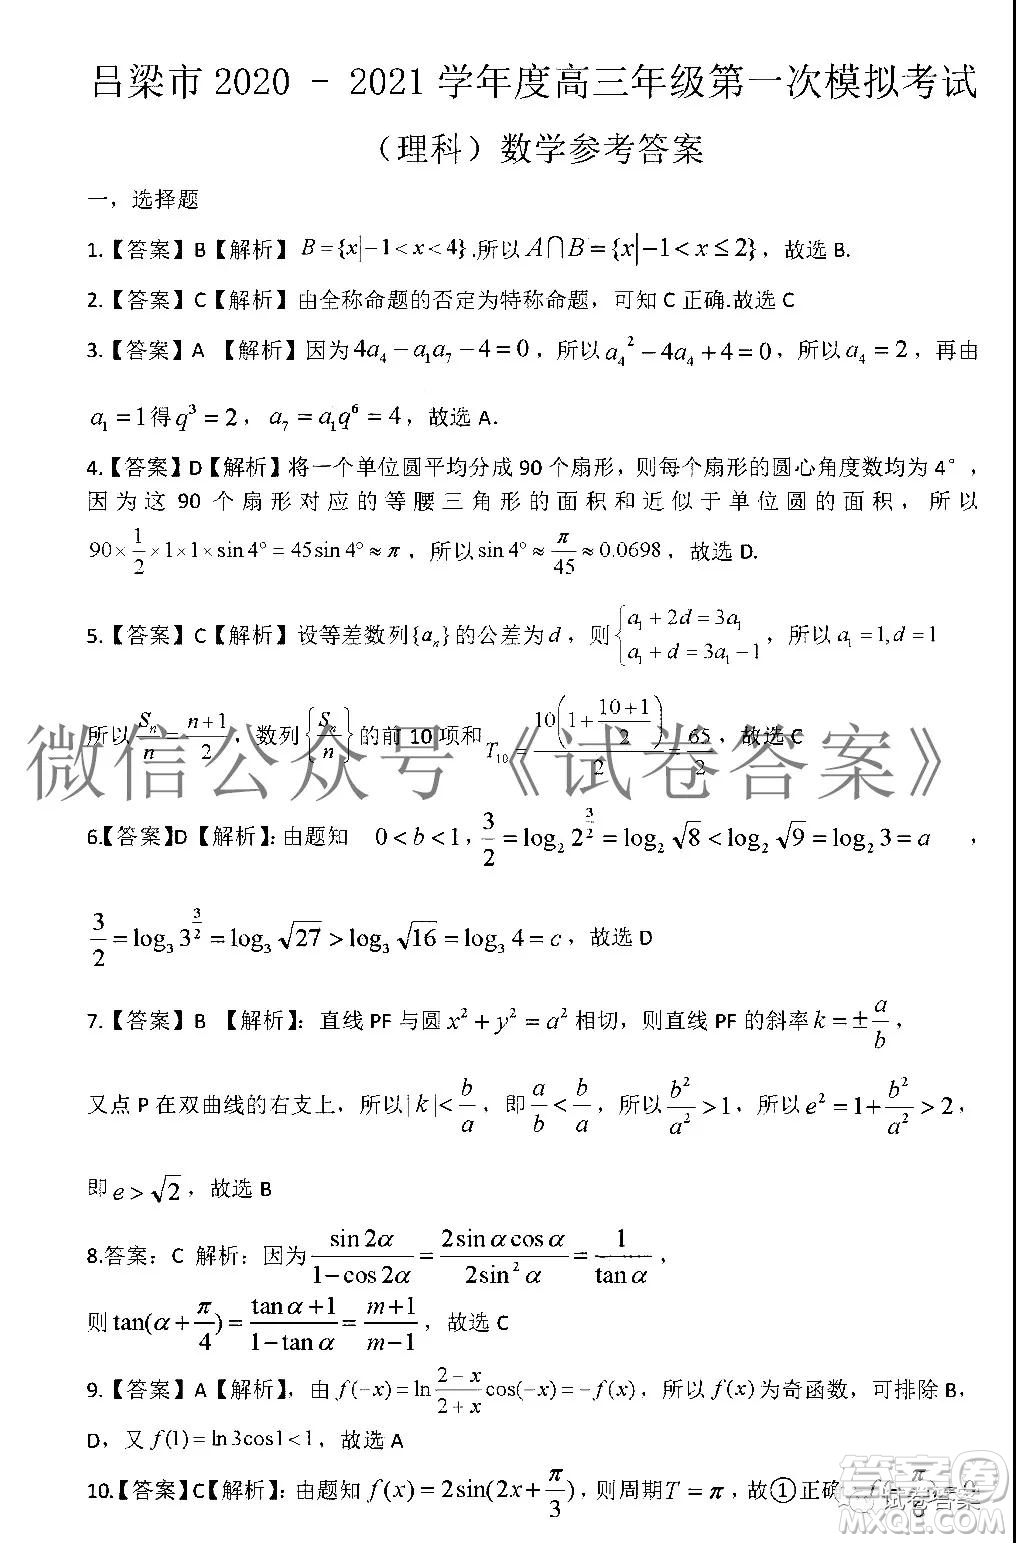 吕梁市 2020 - 2021 学年度高三年级第一次模拟考试
（理科）数学参考答案
一，选择题
1.【答案】B【解析】 B={x|-1<x<4}.所以 A∩B={x|-1<x≤2}，故选 B.
2.【答案】C【解析】由全称命题的否定为特称命题，可知 C 正确.故选 C
3.【答案】A 【解析】因为 4a₄-a₁a₇-4=0，所以 a₄²-4a₄+4=0，所以 a₄=2，再由
a₁=1得 q³=2， a₇=a₁q⁶=4，故选 A.
4.【答案】D【解析】将一个单位圆平均分成 90 个扇形，则每个扇形的圆心角度数均为 4°，
因为这 90 个扇形对应的等腰三角形的面积和近似于单位圆的面积，所以
90×1/2×1×1×sin4°=45sin4°≈π，所以 sin4°≈π/45≈0.0698，故选 D.
5.【答案】C【解析】设等差数列{aₙ}的公差为 d，则 {a₁+2d=3a₁ a₁+d=3a₁-1，所以 a₁=1,d=1
所以 Sₙ/n=(n+1)/2，数列{Sₙ/n}的前 10 项和 T₁₀=10(1+(10+1)/2)/2=65/2，故选 C
微信公众号《试卷答案》
6.【答案】D【解析】：由题知 0<b<1，3/2=log₂2^(3/2)=log₂√8<log₂√9=log₂3=a ，
3/2=log₃3^(3/2)=log₃√27>log₃√16=log₃4=c，故选 D
7.【答案】B 【解析】：直线 PF 与圆 x²+y²=a² 相切，则直线 PF 的斜率 k=±a/b，
又点 P 在双曲线的右支上，所以|k|<b/a，即 a/b<b/a，所以 b²/a²>1，所以 e²=1+b²/a²>2，
即 e>√2，故选 B
8.答案：C 解析：因为 sin2α/(1-cos2α)=2sinαcosα/(2sin²α)=1/tanα，
则 tan(α+π/4)=(tanα+1)/(1-tanα)=(m+1)/(m-1)，故选 C
9.【答案】A【解析】，由 f(-x)=ln(2-x)/(2+x)cos(-x)=-f(x)，所以 f(x)为奇函数，可排除 B，
D，又 f(1)=ln3cos1<1，故选 A
10.【答案】C【解析】：由题知 f(x)=2sin(2x+π/3)，则周期 T=π，故①正确
试卷答案
MXQE.COM